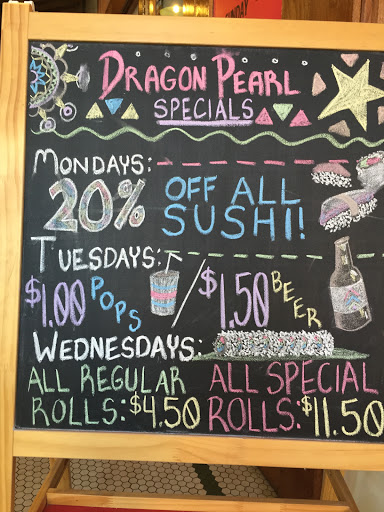 DRAGON PEARL
SPECIALS
MONDAYS:
20% OFF ALL
SUSHI!
TUESDAYS:
$1.00 POPS / $1.50 BEER
WEDNESDAYS:
ALL REGULAR
ROLLS: $4.50
ALL SPECIAL
ROLLS: $11.50